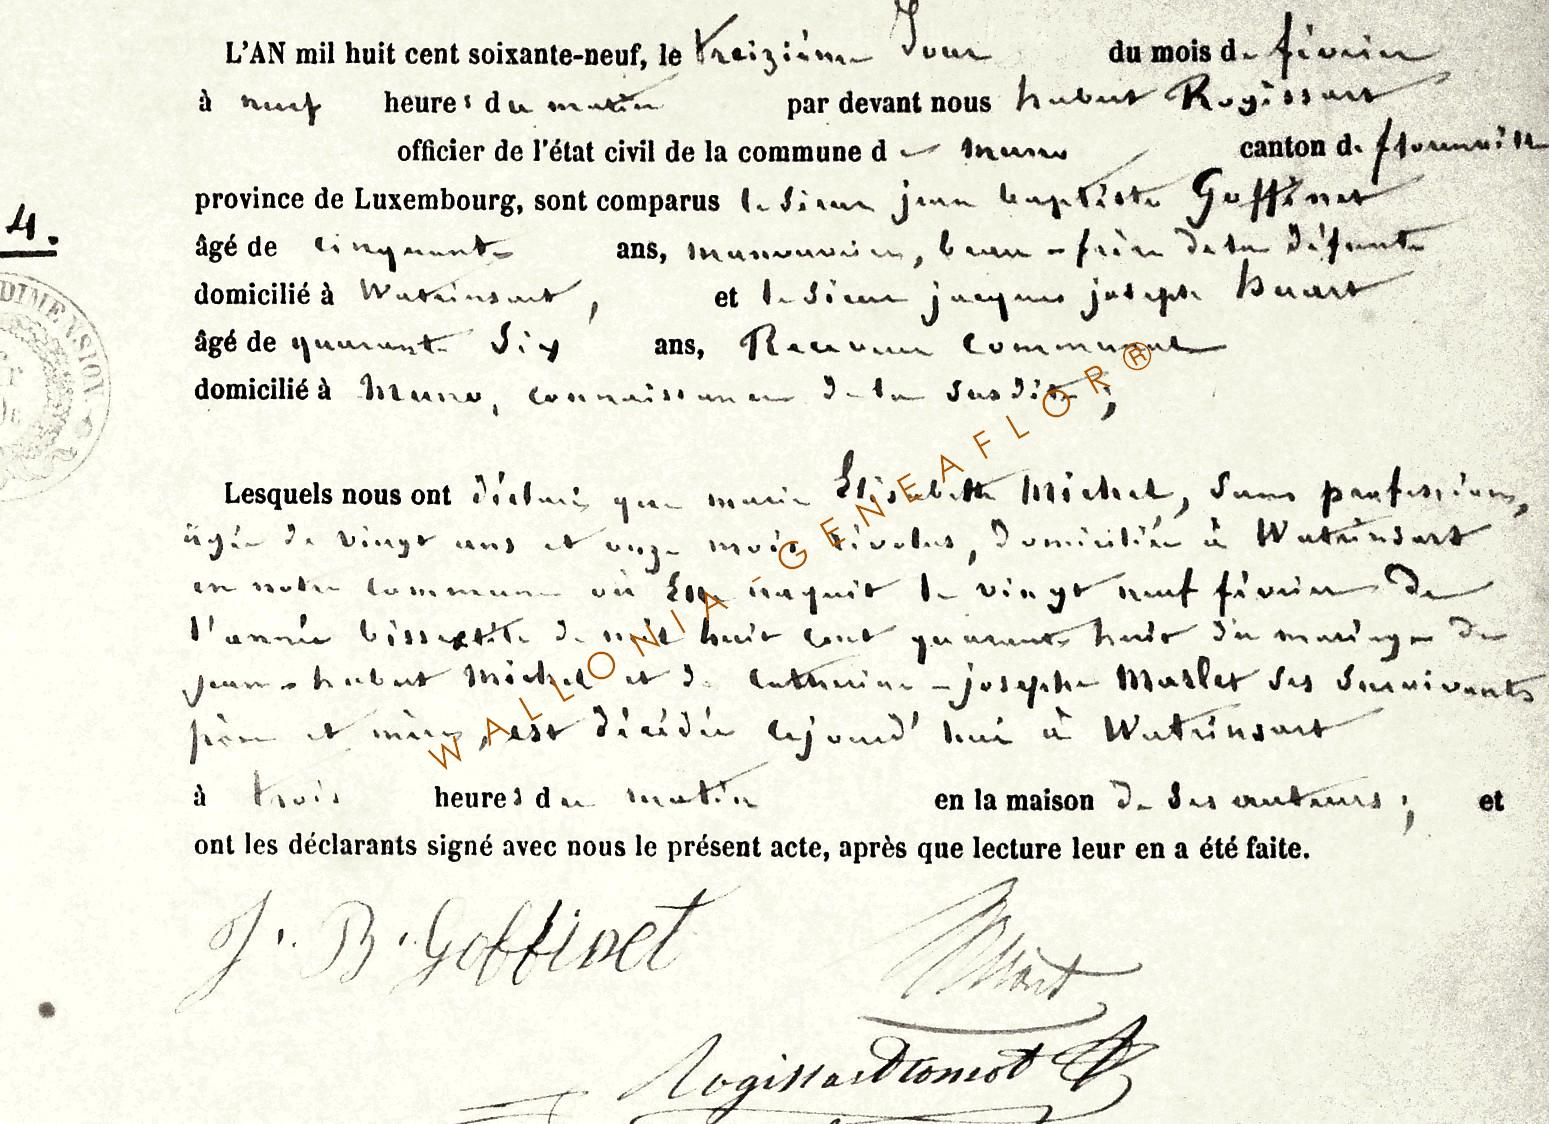 L'AN mil huit cent soixante-neuf, le treizième Jour du mois de février
à neuf heures du matin par devant nous hubert Rogissart
officier de l'état civil de la commune de muno canton de florenville
4.
province de Luxembourg, sont comparus le sieur jean baptiste Goffinet
âgé de cinquante ans, manouvrier, beau-frère de la défunte
domicilié à Watrinsart, et le sieur jacques joseph
DIMENSION
âgé de quarante Six ans, Receveur Communal
domicilié à Muno, connaissance de la susdite;
Lesquels nous ont déclaré que marie Elisabeth Michel, Sans profession,
âgée de vingt ans et onze mois révolus, domiciliée à Watrinsart
en notre commune où Elle naquit le vingt neuf février de
l'année bissextile de mil huit cent quarante huit du mariage de
jean-hubert Michel et de Catherine-josephe Marlet ses Survivants
père et mère, est décédée cejourd'hui à Watrinsart
à trois heures du matin en la maison de Ses auteurs; et
ont les déclarants signé avec nous le présent acte, après que lecture leur en a été faite.
WALLONIA-GENEAFLOR®
J. B. Goffinet